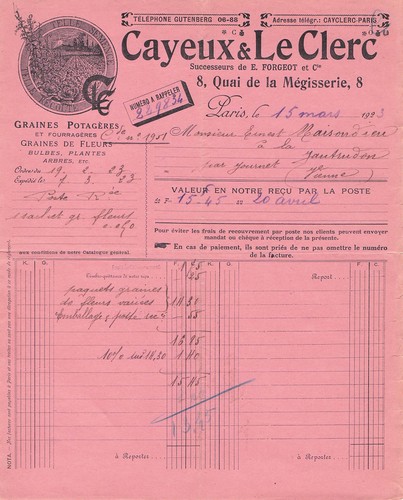 TÉLÉPHONE GUTENBERG 06-88
Adresse télégr.: CAYCLERC-PARIS
Cayeux & Le Clerc
Successeurs de E. FORGEOT et Cie
8, Quai de la Mégisserie, 8
NUMÉRO A RAPPELER
889834
Paris, le 15 mars 1923
GRAINES POTAGÈRES
ET FOURRAGÈRES
GRAINES DE FLEURS
BULBES, PLANTES
ARBRES, ETC.
no 1951
Monsieur Ernest Maisondieu
à la
par Journet
Vienne
Ordre du 19. 2. 23
Expédié le 7. 3. 23
Poste Réc
1 sachet gr. fleurs
VALEUR EN NOTRE REÇU PAR LA POSTE
DE F. 15.45 LE 20 avril
Pour éviter les frais de recouvrement par poste nos clients peuvent envoyer
mandat ou chèque à réception de la présente.
En cas de paiement, ils sont priés de ne pas omettre le numéro
de la facture.
aux conditions de notre Catalogue général.
Report
1 45
25
paquets graines
de fleurs variées 14 30
Emballage & poste rec 55
16 95
10% sur 14,30 1 40
15 45
à Reporter
à Reporter
NOTA.